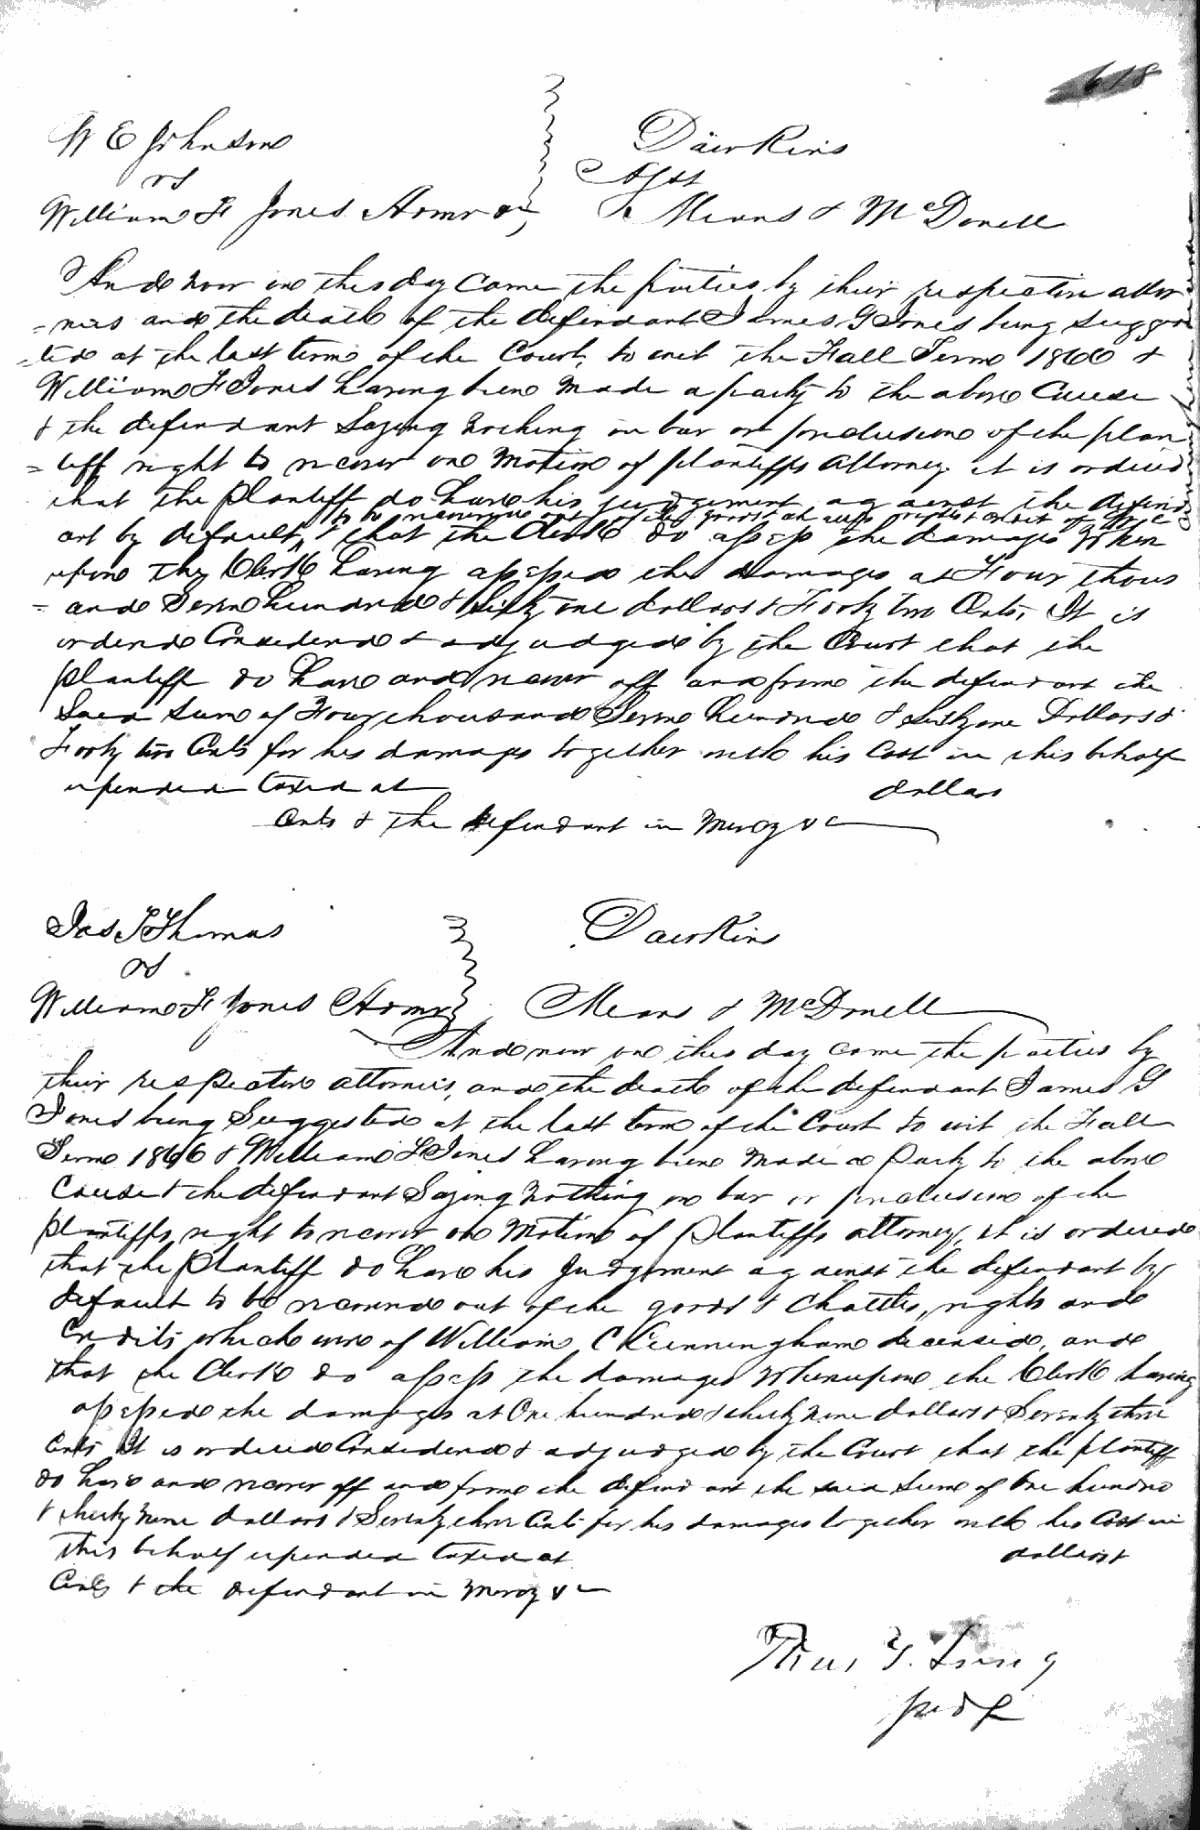 618
W E Johnson Dawkins
vs Agst
William F Jones Admr &c, Means & McDonell
And now on this day came the parties by their respective attor
=neis and the death of the defendant James G Jones being sugges
=ted at the last term of the Court, to wit the Fall Term 1866 &
William F Jones having been made a party to the above Cause
& the defendant Saying nothing in bar or preclusion of the plan
=tiff right to recover on motion of plantiffs attorney it is ordered
that the plantiff do have his judgement against the defend
to be recovered out of the goods chattels rights & credit of
ant by default, & that the Clerk do assess the damages When
upon the Clerk having assessed the damages at Four thous
=and Seven hundred & sixty one dollars & Forty two Cents, It is
ordered Considered & adjudged by the Court that the
plantiff do have and recover off and from the defendant the
Said sum of Four thousand Seven hundred & sixty one Dollars &
Forty two Cents for his damages together with his Cost in this behalf
expended taxed at dollars
Cents & the defendant in mercy &c
Jas T Thomas Dawkins
vs
William F Jones Admr Means & McDonell
And now on this day came the parties by
their respective attorneis, and the death of the defendant James G
Jones being Suggested at the last term of the Court to wit the Fall
Term 1866 & William F Jones having been made a party to the above
Cause & the defendant Saying nothing in bar or preclusion of the
plantiffs right to recover on motion of plantiffs attorney, it is ordered
that the plantiff do have his Judgement against the defendant by
default to be recovered out of the goods & chattles, rights and
Credits which were of William C Cunningham deceased, and
that the Clerk do assess the damages Whereupon the Clerk having
assessed the damages at One hundred & thirty nine dollars & Seventy three
Cents It is ordered Considered & adjudged by the Court that the plantiff
do have and recover off and from the defendant the said sum of One hundred
& thirty nine dollars & Seventy three Cents for his damages together with his Cost in
this behalf expended taxed at dollars &
Cents & the defendant in mercy &c
Judge